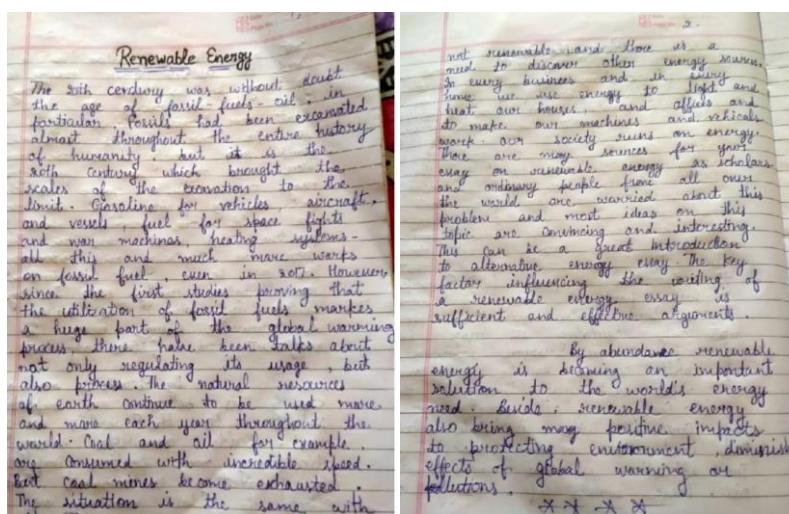 Renewable Energy
The 20th cendury was without doubt
the age of fossil-fuels - oil, in
partiular. Fossils had been excavated
almost throughout the entire history
of humanity. but it is the
20th century which brought the
scales of the excavation to the
limit. Gasoline for vehicles aircraft,
and vessels, fuel for space fights
and war machinas, heating systems-
all this and much more warks
on fossil fuel, even in 2017. However,
since the first studies proving that
the utilization of fossil fuels markes
a huge part of the global warming
process, there have been talks about
not only regulating its usage, but
also process. The natural resources
of earth continue to be used more
and more each year throughout the
world. Coal and oil for example
are consumed with incredible speed.
But coal mines become exhausted.
The situation is the same with
2.
not renewable and there is a
need to discover other energy sources.
In every business and in every
home we use energy to light and
heat our houses, and offices and
to make our machines and vehicals
work. our society runs on energy.
There are may sources for your
essay on renewable energy as scholars
and ordinary people from all over
the world are warried about this
problem and most ideas on this
topic are convincing and interesting.
This can be a great Introduction
to alternative energy essay. The key
factor influencing the writing of
a renewable energy essay is
sufficient and effective arguments.
By abundance renewable
energy is becaming an important
solution to the world's energy
need. Beside, renewable energy
also bring may positive impacts
to protecting environment, diminish
effects of global warning or
pollutions.